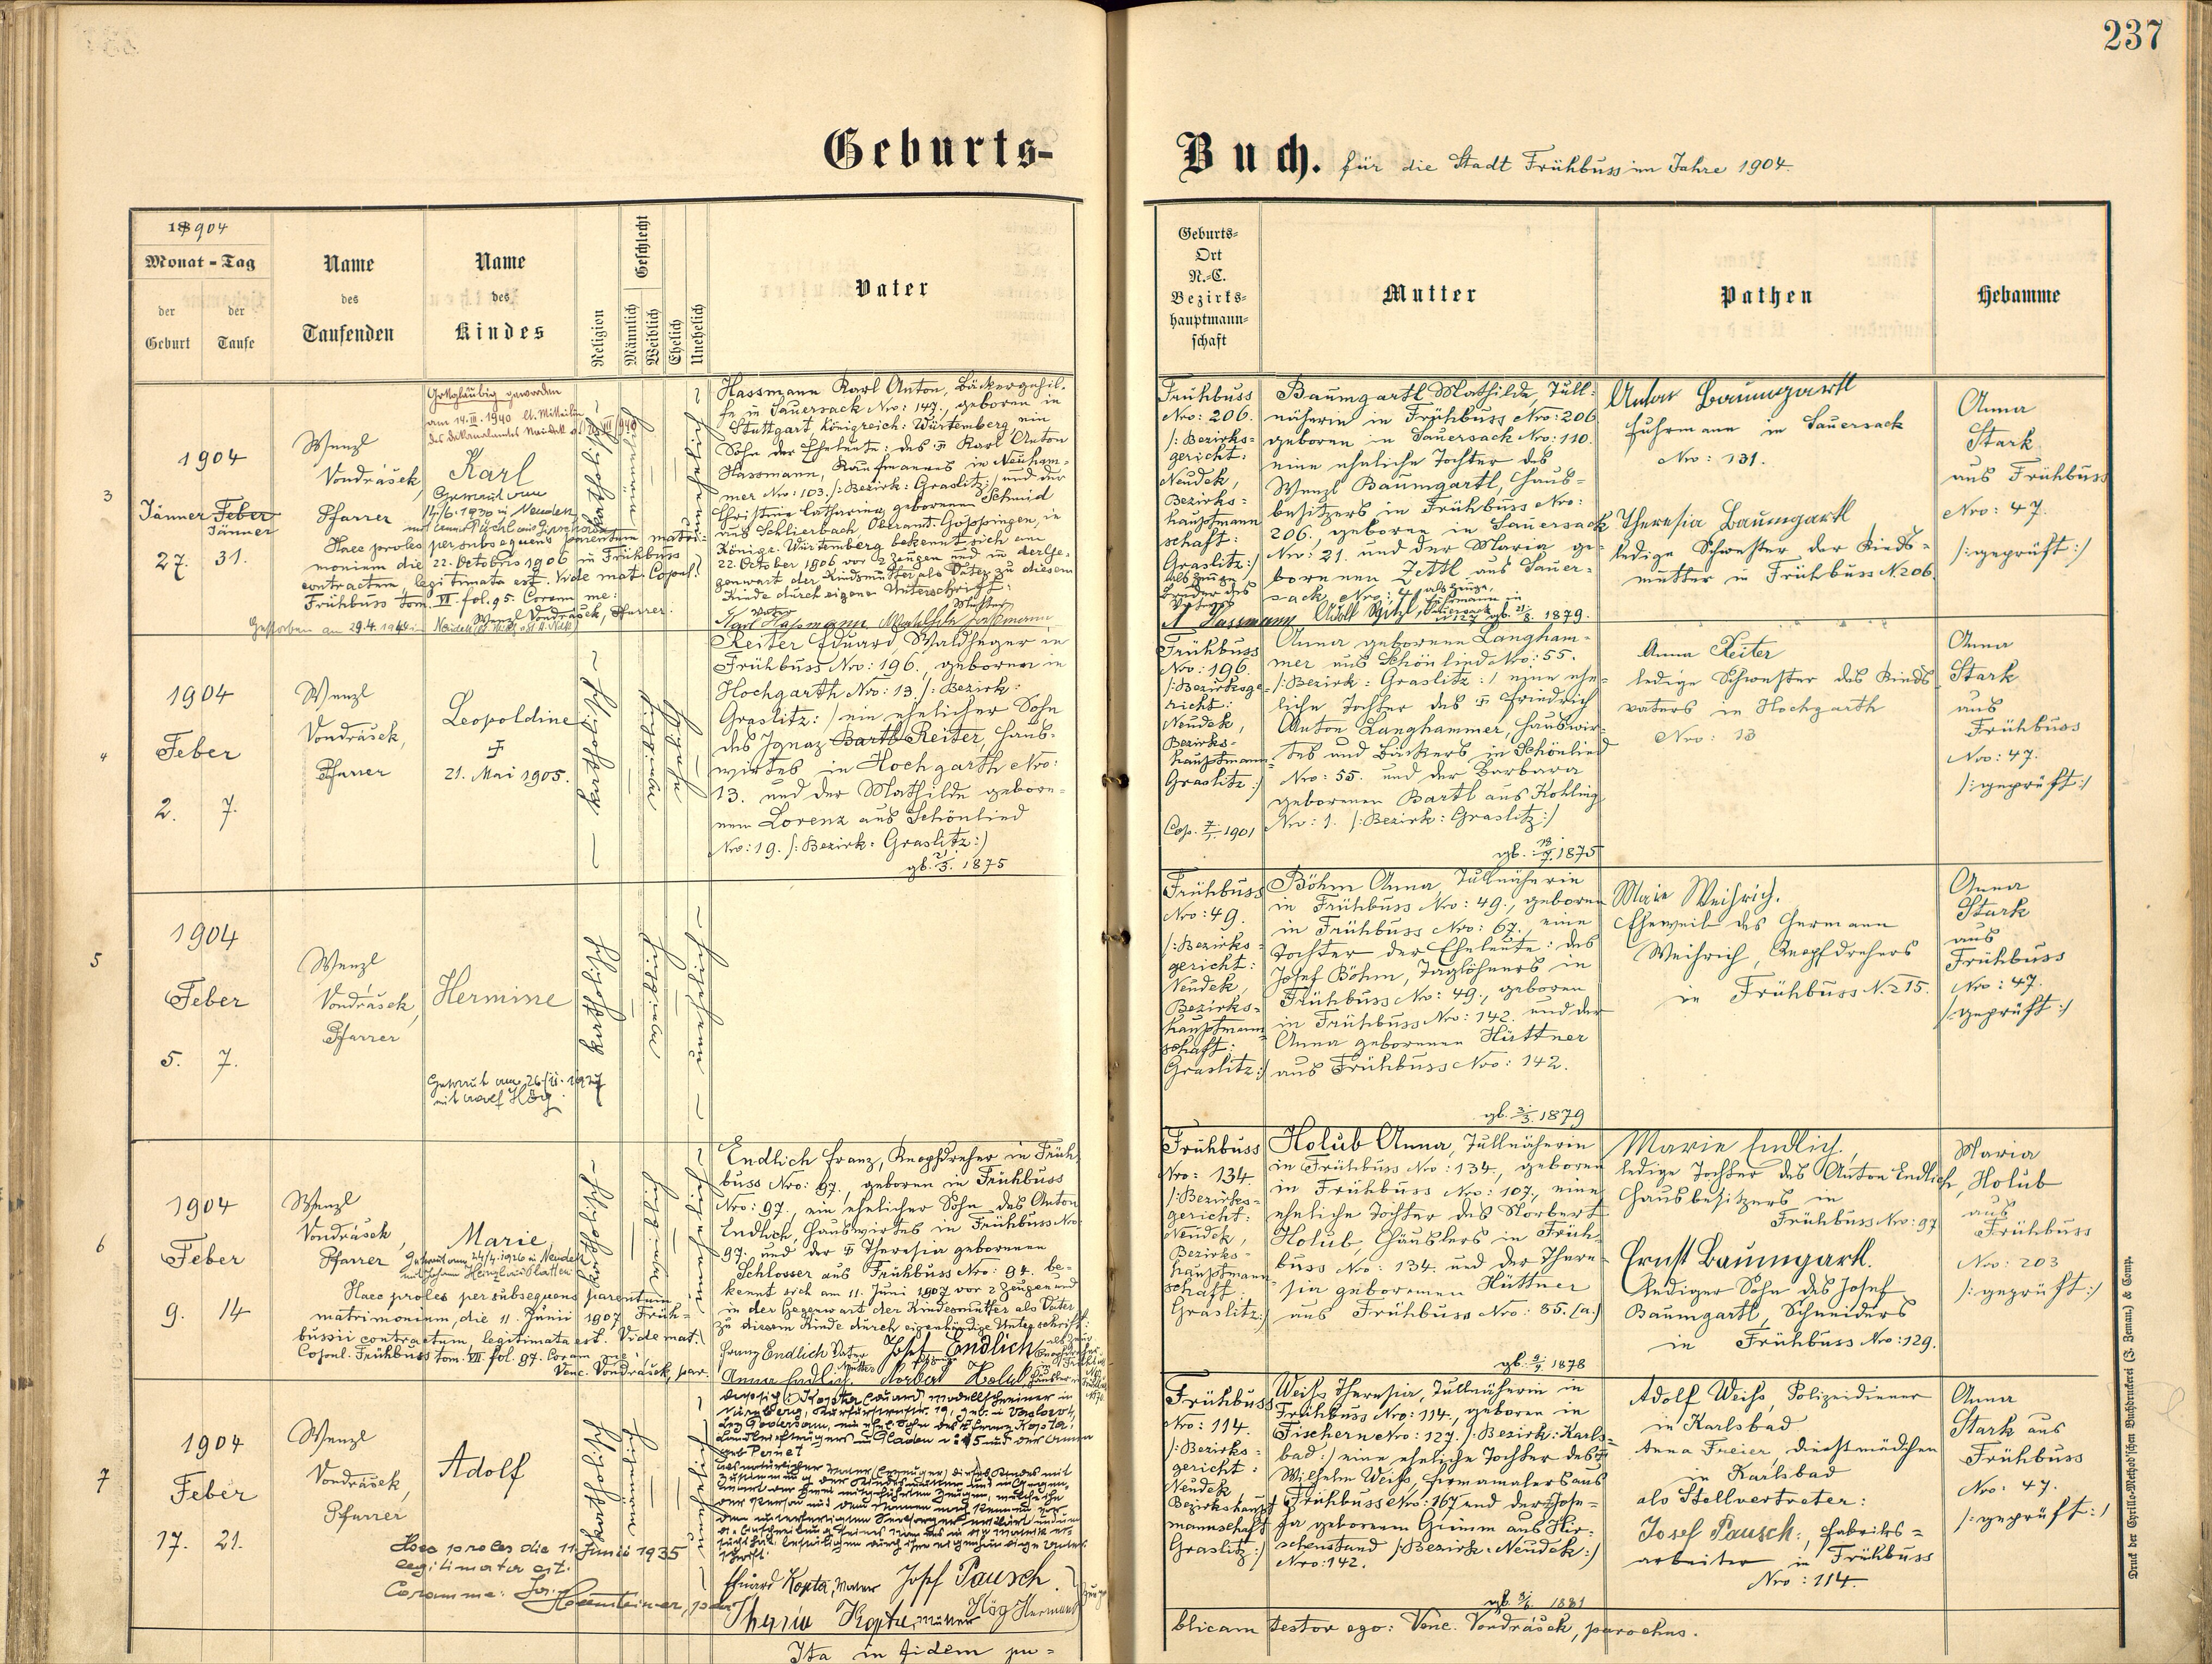 237
Geburts-
Buch. für die Stadt Frühbuss im Jahre 1904.
18904
Monat - Tag
der Geburt
der Taufe
Name des Taufenden
Name des Kindes
Religion
Geschlecht
Männlich
Weiblich
Ehelich
Unehelich
Vater
Geburts-
Ort
N.-C.
Bezirks-
hauptmann-
schaft
Mutter
Pathen
Hebamme
3
1904
Jänner Feber
Jänner
27. 31.
Wenzl
Vondrásek,
Pfarrer
Gottgläubig geworden
am 14.III.1940 lt. Mitteilg
Karl
Getraut am
14/6.1930 in Neudek
Haec proles per subsequens parentum matri-
monium die 22. Octobris 1906 in Frühbuss
contractum, legitimata est. Vide mat. Copul.
Frühbuss tom. VI. fol. 95. Coram me:
Wenzl Vondrásek, Pfarrer.
Gestorben am 29.4.1944
katholisch
Hassmann Karl Anton, Bäckergehil-
fe in Sauersack Nro: 147., geboren in
Stuttgart Königreich: Würtemberg, ein
Sohn der Eheleute: des Karl Anton
Hassmann, Kaufmannes in Neuham-
mer Nro: 103. /: Bezirk: Graslitz:/ und der
Christine Catharina geborenen Schmid
aus Schlierbach, Oberamt: Göppingen, in
Königr. Würtemberg bekennt sich am
22. October 1906 vor 2 Zeugen und in der Ge-
genwart der Kindsmutter als Vater zu diesem
Kinde durch eigene Unterschrift:
Vater Mutter
Karl Hassmann Mathilde Hassmann
Frühbuss
Nro: 206.
/: Bezirks-
gericht:
Neudek,
Bezirks-
hauptmann
schaft:
Graslitz:/
als Zeuge
Bruder des
Vaters
A Hassmann
Baumgartl Mathilde, Tüll-
näherin in Frühbuss Nro: 206
geboren in Sauersack Nro: 110.
eine eheliche Tochter des
Wenzl Baumgartl, Haus-
besitzers in Frühbuss Nro:
206., geboren in Sauersack
Nro: 21. und der Maria ge-
borenen Zettl aus Sauer-
sack Nro: 4.
als Zeuge,
1879.
Anton Baumgartl
Fuhrmann in Sauersack
Nro: 131.
Theresia Baumgartl
ledige Schwester der Kinds-
mutter in Frühbuss N. 206.
Anna
Stark
aus Frühbuss
Nro: 47.
/: geprüft :/
4
1904
Feber
2. 7.
Wenzl
Vondrásek,
Pfarrer
Leopoldine
†
21. Mai 1905.
katholisch
Reiter Eduard, Waldheger in
Frühbuss Nro: 196., geboren in
Hochgarth Nro: 13. /: Bezirk:
Graslitz:/ ein ehelicher Sohn
des Ignaz Bartl Reiter, Haus-
wirtes in Hochgarth Nro:
13. und der Mathilde gebore-
nen Lorenz aus Schönlied
Nro: 19. /: Bezirk: Graslitz:/
gb. 1875
Frühbuss
Nro: 196.
/: Bezirksge-
richt:
Neudek,
Bezirks-
hauptmann-
Graslitz:/
Cop. 1901
Anna geborenen Langham-
mer aus Schönlied Nro: 55.
/: Bezirk: Graslitz :/ eine ehe-
liche Tochter des Friedrich
Anton Langhammer, Hauswir-
tes und Bäckers in Schönlied
Nro: 55. und der Barbara
geborenen Bartl aus Kohling
Nro: 1. /: Bezirk: Graslitz:/
gb. 1875
Anna Reiter
ledige Schwester des Kinds-
vaters in Hochgarth
Nro: 13
Anna
Stark
aus
Frühbuss
Nro: 47.
/: geprüft :/
5
1904
Feber
5. 7.
Wenzl
Vondrásek,
Pfarrer
Hermine
mit Adolf Hög.
katholisch
Frühbuss
Nro: 49.
/: Bezirks-
gericht:
Neudek,
Bezirks-
hauptmann
schaft:
Graslitz:/
Böhm Anna, Tüllnäherin
in Frühbuss Nro: 49., geboren
in Frühbuss Nro: 67., eine
Tochter der Eheleute: des
Josef Böhm, Taglöhners in
Frühbuss Nro: 49., geboren
in Frühbuss Nro: 142. und der
Anna geborenen Hüttner
aus Frühbuss Nro: 142.
gb. 1879
Marie Weihrich.
Eheweib des Hermann
Weihrich, Knopfdrehers
in Frühbuss N. 215.
Anna
Stark
aus
Frühbuss
Nro: 47.
/: geprüft :/
6
1904
Feber
9. 14
Wenzl
Vondrásek,
Pfarrer
Marie
Haec proles per subsequens parentum
matrimonium, die 11. Junii 1907 Früh-
bussii contractum, legitimata est. Vide mat.
Copul. Frühbuss tom. VII. fol. 97. Coram me
Venc. Vondrásek, par.
katholisch
Endlich Franz, Knopfdreher in Früh-
buss Nro: 97., geboren in Frühbuss
Nro: 97., ein ehelicher Sohn des Anton
Endlich, Hauswirtes in Frühbuss Nro:
97. und der Theresia geborenen
Schlosser aus Frühbuss Nro: 94. be-
kennt sich am 11. Juni 1907 vor 2 Zeugen und
in der Gegenwart der Kindesmutter als Vater
zu diesem Kinde durch eigenhändige Unterschrift:
Franz Endlich Vater Josef Endlich
Anna Endlich Mutter Norbert Holub
Frühbuss
Nro: 134
/: Bezirks-
gericht:
Neudek,
Bezirks-
hauptmann-
schaft:
Graslitz:/
Holub Anna, Tüllnäherin
in Frühbuss Nro: 134., geboren
in Frühbuss Nro: 107., eine
eheliche Tochter des Norbert
Holub, Häuslers in Früh-
buss Nro: 134. und der There-
sia geborenen Hüttner
aus Frühbuss Nro: 85. (a.)
gb. 1878
Marie Endlich,
ledige Tochter des Anton Endlich,
Hausbesitzers in
Frühbuss Nro: 97
Ernst Baumgartl.
lediger Sohn des Josef
Baumgartl, Schneiders
in Frühbuss Nro: 129.
Maria
Holub
aus
Frühbuss
Nro: 203
/: geprüft :/
7
1904
Feber
17. 21.
Wenzl
Vondrásek,
Pfarrer
Adolf
Haec proles die 11. Junii 1935
legitimata est.
Coram me:
katholisch
Eduard Kopta, Vater Josef Pausch.
Theresia Kopta, Mutter Hög Hermann
Zeugen
Frühbuss
Nro: 114.
/: Bezirks-
gericht:
Neudek
Bezirkshaupt
mannschaft
Graslitz:/
Weiss Theresia, Tüllnäherin in
Frühbuss Nro: 114., geboren in
Fischern Nro: 127. /: Bezirk: Karls-
bad:/ eine eheliche Tochter des
Wilhelm Weiss, Firmamalers aus
Frühbuss Nro: 167 und der Jose-
fa geborenen Grimm aus Hir-
schenstand /: Bezirk: Neudek:/
Nro: 142.
gb. 1881
Adolf Weiss, Polizeidiener
in Karlsbad
Anna Freier, Dienstmädchen
in Karlsbad
als Stellvertreter:
Josef Pausch, Fabriks-
arbeiter in Frühbuss
Nro: 114.
Anna
Stark aus
Frühbuss
Nro: 47.
/: geprüft :/
Ita in fidem pu-
blicam testor ego: Venc. Vondrásek, parochus.
Druck der Cyrillo-Method'schen Buchdruckerei (J. Zeman) & Comp.